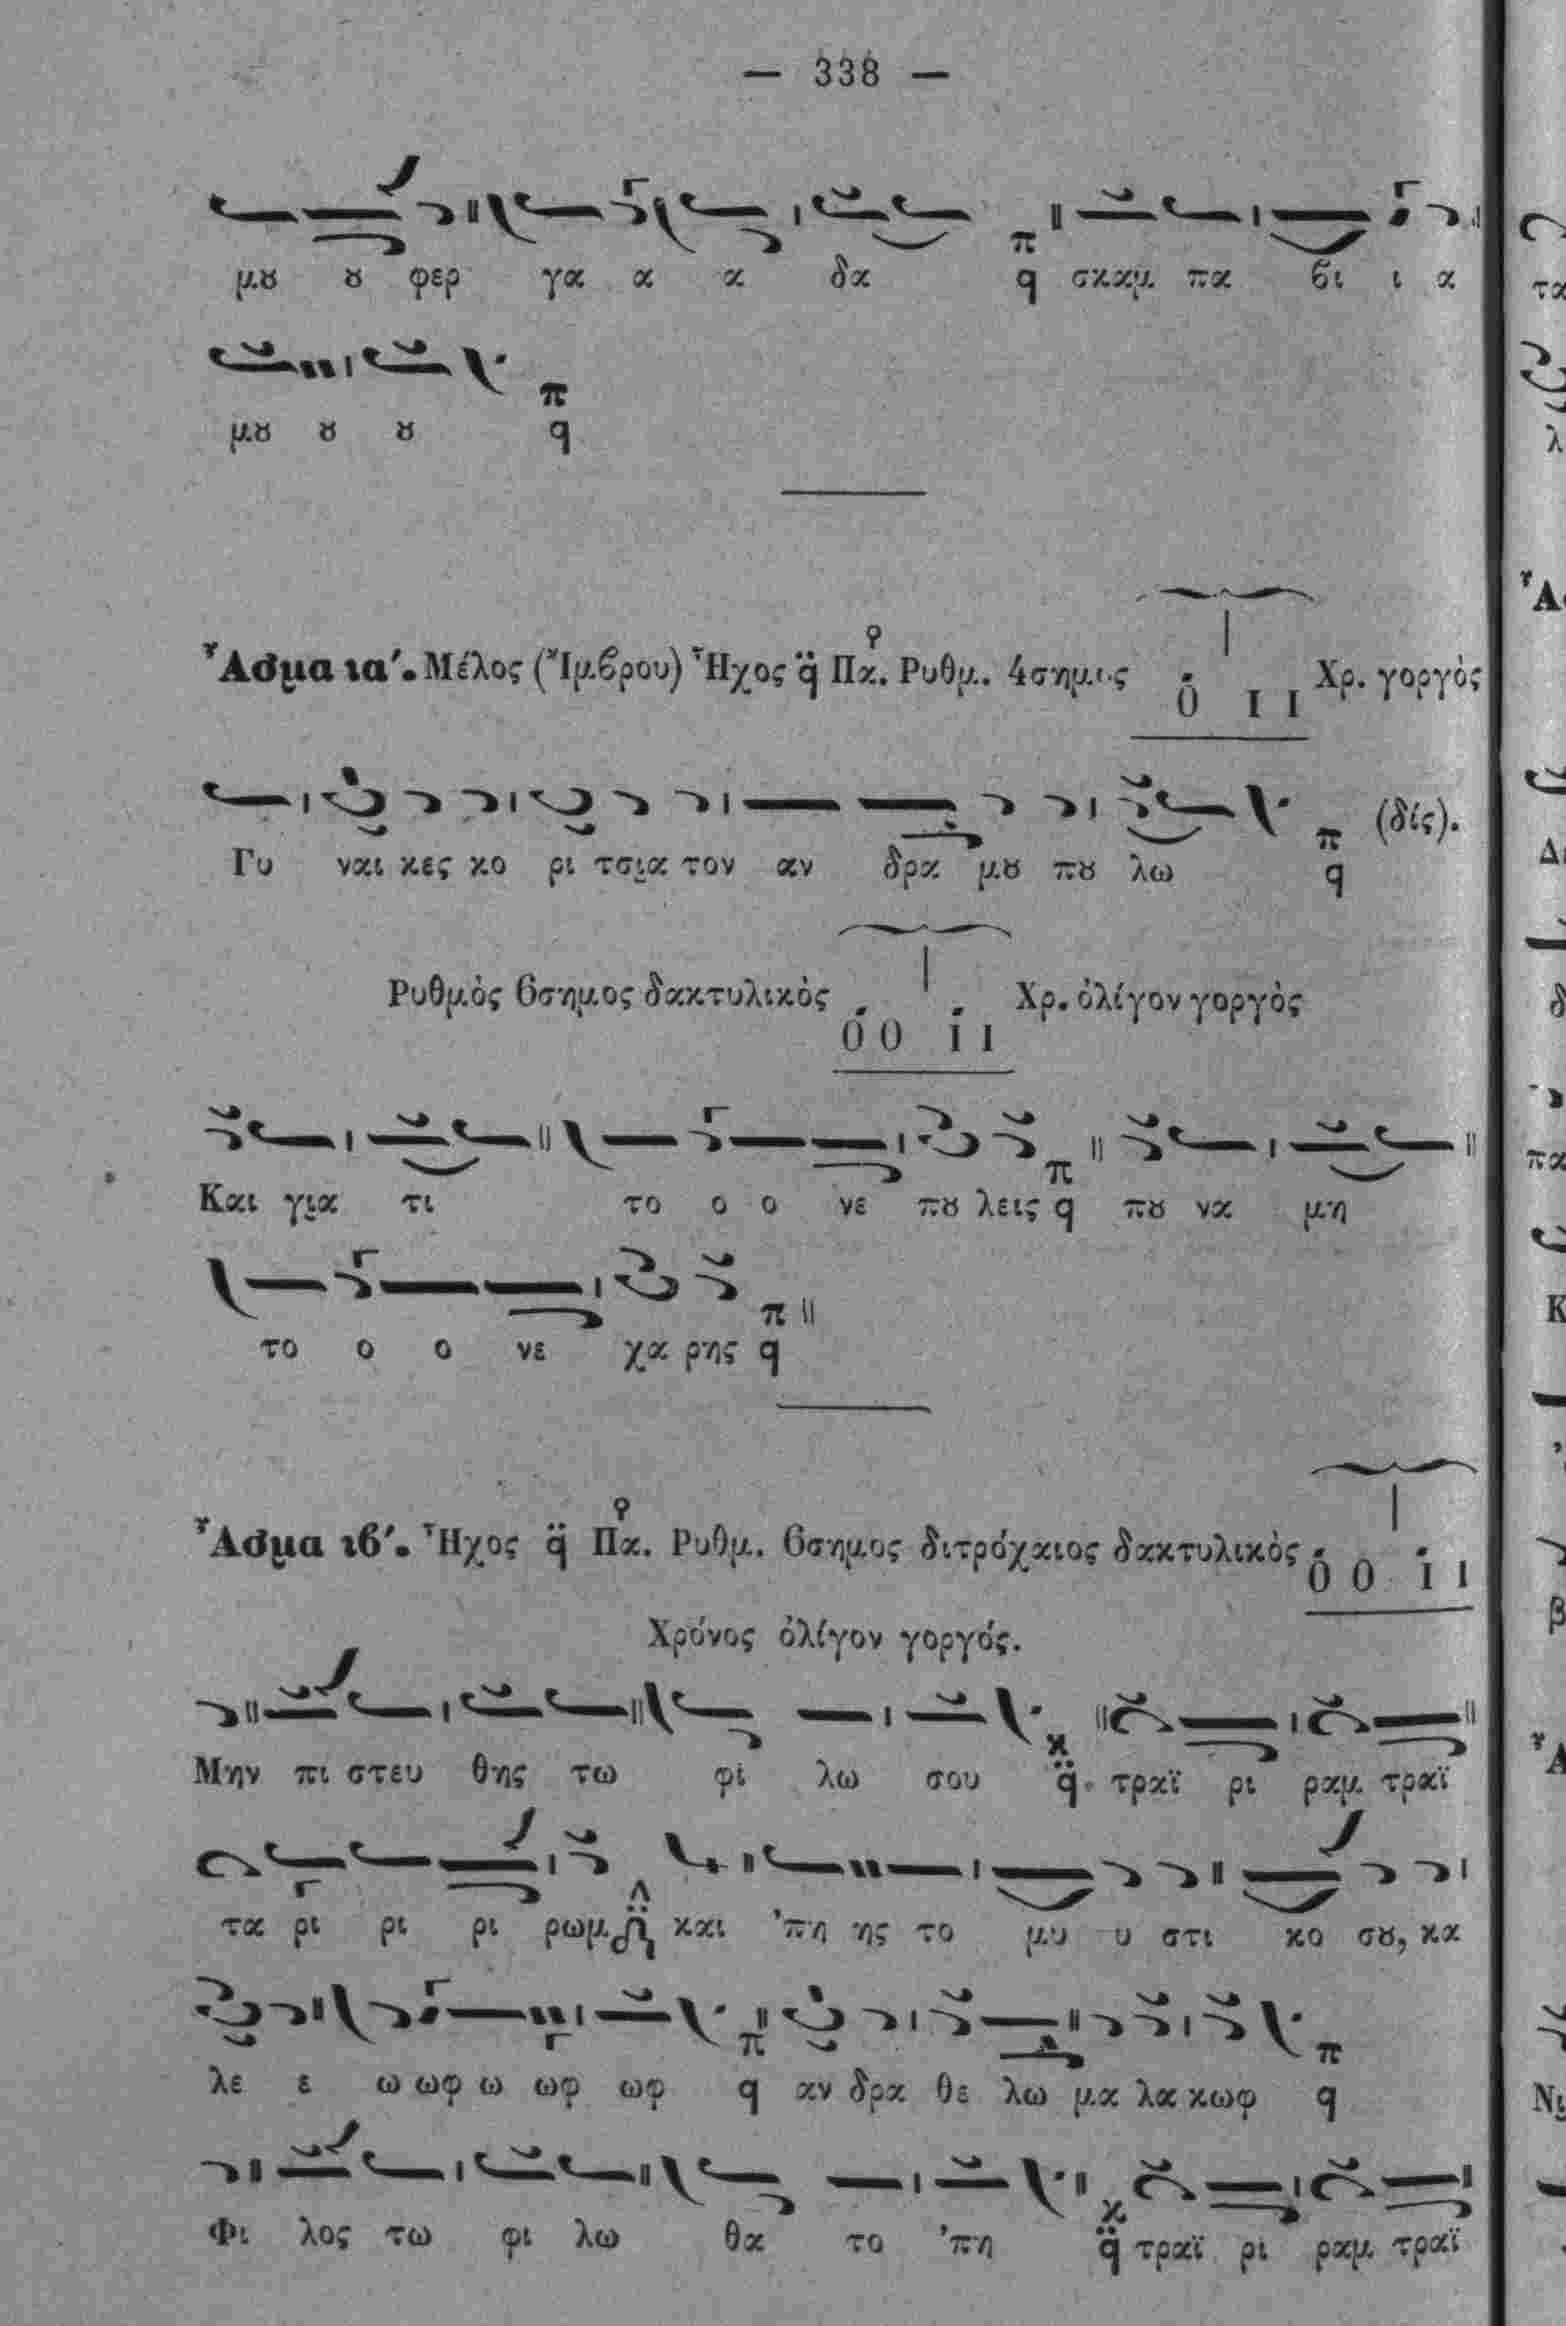 — 338 —
μȣ ȣ φερ γα α α δα π q σκαμ πα βι ι α
μȣ ȣ ȣ π q
Ἆσμα ια΄. Μέλος (Ἴμβρου) Ἦχος q̈ Πα. Ρυθμ. 4σημος 0 I I Χρ. γοργὸς
Γυ ναι κες κο ρι τσια τον αν δρα μȣ πȣ λω π q (δίς).
Ρυθμὸς 6σημος δακτυλικὸς 0 0 I I Χρ. ὀλίγον γοργὸς
Και για τι το ο ο νε πȣ λεις π q πȣ να μη
το ο ο νε χα ρης π q
Ἆσμα ιβ΄. Ἦχος q̈ Πα. Ρυθμ. 6σημος διτρόχαιος δακτυλικὸς 0 0 I I
Χρόνος ὀλίγον γοργός.
Μην πι στευ θης τω φι λω σου κ q̈ τραϊ ρι ραμ τραϊ
τα ρι ρι ρι ρωμ και ’πη ης το μυ υ στι κο σȣ, κα
λε ε ω ωφ ω ωφ ωφ π q αν δρα θε λω μα λα κωφ π q
Φι λος τω φι λω θα το ’πη κ q̈ τραϊ ρι ραμ τραϊ